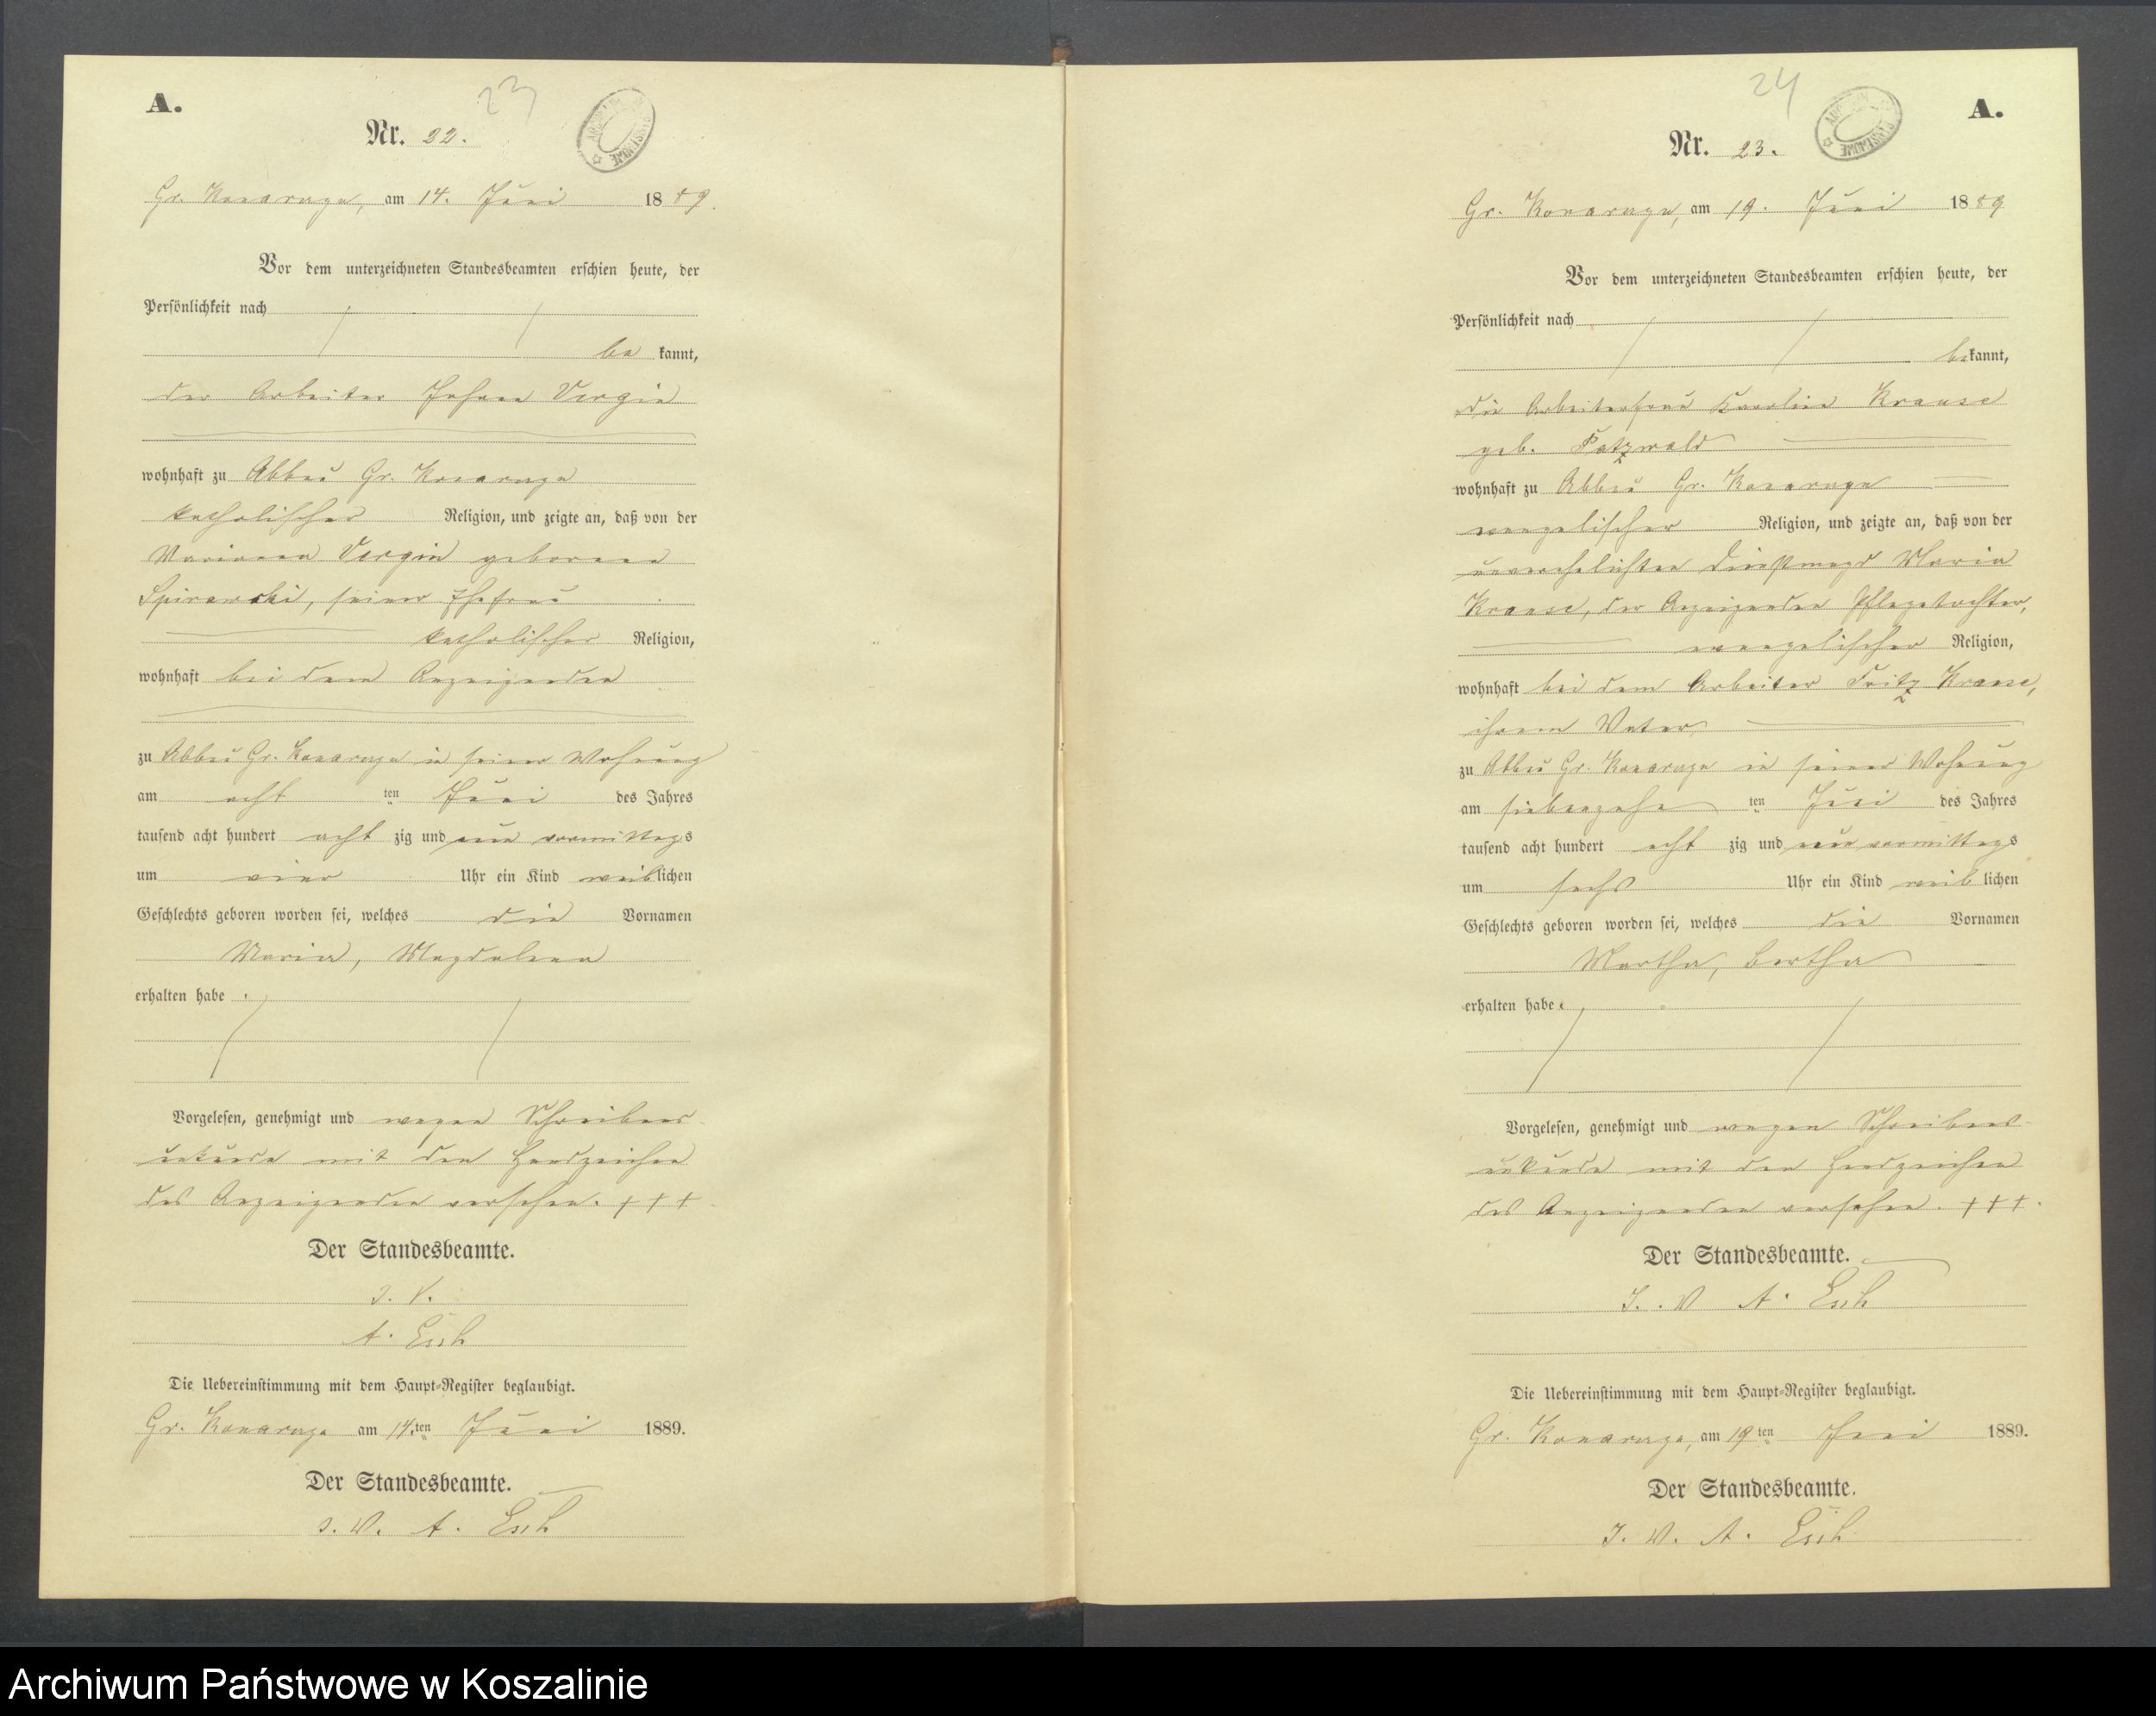 A.
23
Nr. 22.
Gr. Konarczyn, am 14. Juni 1889.
Vor dem unterzeichneten Standesbeamten erschien heute, der
Persönlichkeit nach
be kannt,
der Arbeiter Johann Vergin
wohnhaft zu Abbau Gr. Konarczyn
katholischer Religion, und zeigte an, daß von der
Marianna Vergin geborene
Spirawski, seiner Ehefrau
katholischer Religion,
wohnhaft bei dem Anzeigenden
zu Abbau Gr. Konarczyn in seiner Wohnung
am acht ten Juni des Jahres
tausend acht hundert acht zig und neun vormittags
um vier Uhr ein Kind weiblichen
Geschlechts geboren worden sei, welches die Vornamen
Maria, Magdalena
erhalten habe.
Vorgelesen, genehmigt und wegen Schreibens
unkunde mit den Handzeichen
des Anzeigenden versehen. + + +
Der Standesbeamte.
I. V.
A. Esch
Die Uebereinstimmung mit dem Haupt-Register beglaubigt.
Gr. Konarczyn am 14.ten Juni 1889.
Der Standesbeamte.
I. V. A. Esch
24
A.
Nr. 23.
Gr. Konarczyn, am 19. Juni 1889
Vor dem unterzeichneten Standesbeamten erschien heute, der
Persönlichkeit nach
bekannt,
die Arbeiterfrau Karoline Krause
geb. Patzwald
wohnhaft zu Abbau Gr. Konarczyn
evangelischer Religion, und zeigte an, daß von der
unverehelichten Dienstmagd Maria
Krause, der Anzeigenden Pflegetochter,
evangelischer Religion,
wohnhaft bei dem Arbeiter Fritz Krause,
ihrem Vater,
zu Abbau Gr. Konarczyn in seiner Wohnung
am siebenzehn ten Juni des Jahres
tausend acht hundert acht zig und neun vormittags
um sechs Uhr ein Kind weiblichen
Geschlechts geboren worden sei, welches die Vornamen
Martha, Bertha
erhalten habe.
Vorgelesen, genehmigt und wegen Schreibens
unkunde mit den Handzeichen
des Anzeigenden versehen. + + +.
Der Standesbeamte.
I. V A. Esch
Die Uebereinstimmung mit dem Haupt-Register beglaubigt.
Gr. Konarczyn, am 19ten Juni 1889.
Der Standesbeamte.
I. V. A. Esch
Archiwum Państwowe w Koszalinie